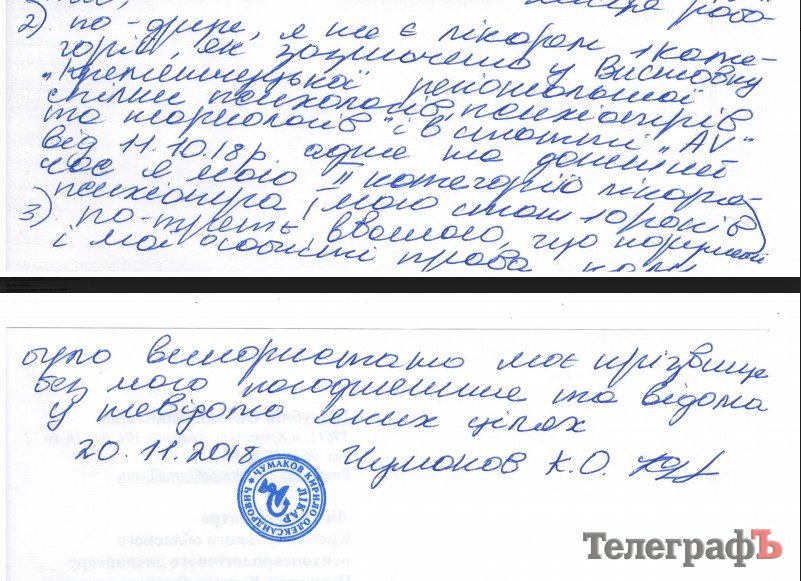 2) по-друге, я не є лікарем I кате-
горії, як зазначено у Висновку
"Кременчуцької регіональної
спілки психологів, психіатрів
та наркологів" і в статті "AV"
від 11.10.18р. адже на даний
час я маю II категорію лікаря-
психіатра (маю стаж 10 років)
3). по-третє, вважаю, що порушені
і мої особисті права, коли
було використано моє прізвище
без мого погодження та відома
у невідомо яких цілях
20.11.2018 Чумаков К.О.
ЧУМАКОВ КИРИЛО ОЛЕКСАНДРОВИЧ
ЛІКАР
ТелеграфЪ